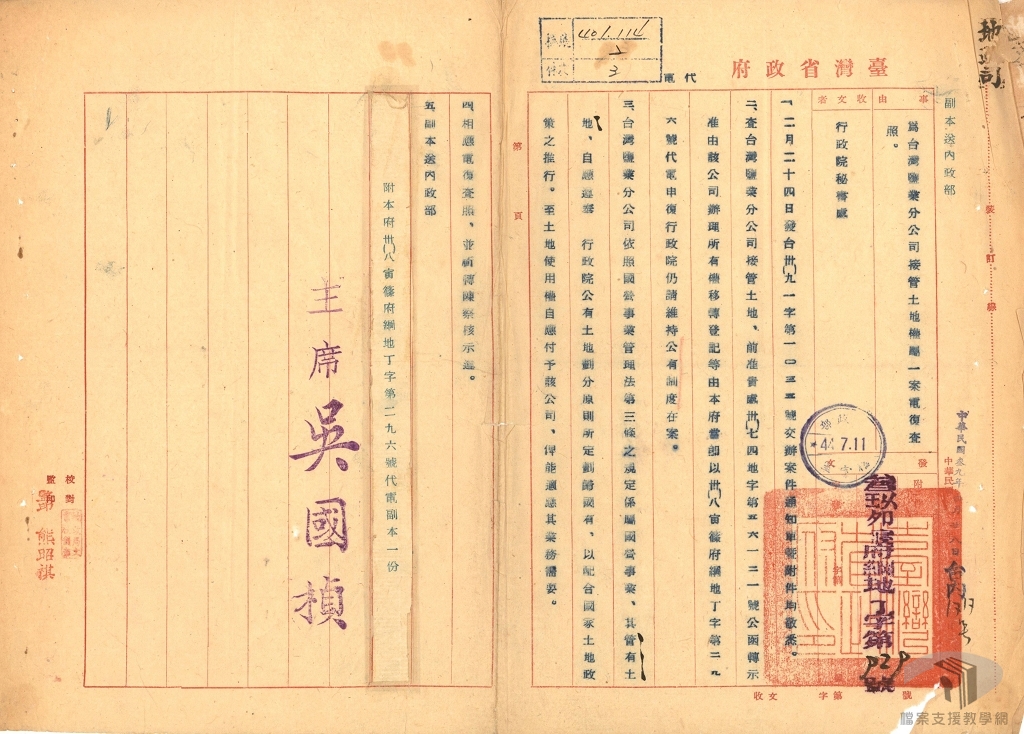 臺灣省政府 代電
401.114
2
3
地政司
裝訂線
副本送內政部
事由
收文者
為台灣鹽業分公司接管土地權屬一案電復查
照。
行政院秘書處
中華民國叁九年
發文
附
44.7.11
叁玖卯 府綱地丁字第
號
一、二月二十四日發台卅(〇)九一字第一〇三五號交辦案件通知單暨附件均敬悉。
二、查台灣鹽業分公司接管土地、前准貴處卅(〇)七四地字第五六一三一號公函轉示
准由該公司辦理所有權移轉登記等由本府當即以卅(〇)八寅篠府綱地丁字第二九
六號代電申復行政院仍請維持公有制度在案。
三、台灣鹽業分公司依照國營事業管理法第三條之規定係屬國營事業、其管有土
地、自應遵奉 行政院公有土地劃分原則所定劃歸國有、以配合國家土地政
策之推行。至土地使用權自應付予該公司、俾能適應其業務需要。
第 頁
四、相應電復查照、並祈轉陳察核示遵。
五、副本送內政部
附本府卅(〇)八寅篠府綱地丁字第二九六號代電副本一份
主席 吳國楨
校對
監印
熊昭祺
收文 字第 號
檔案支援教學網